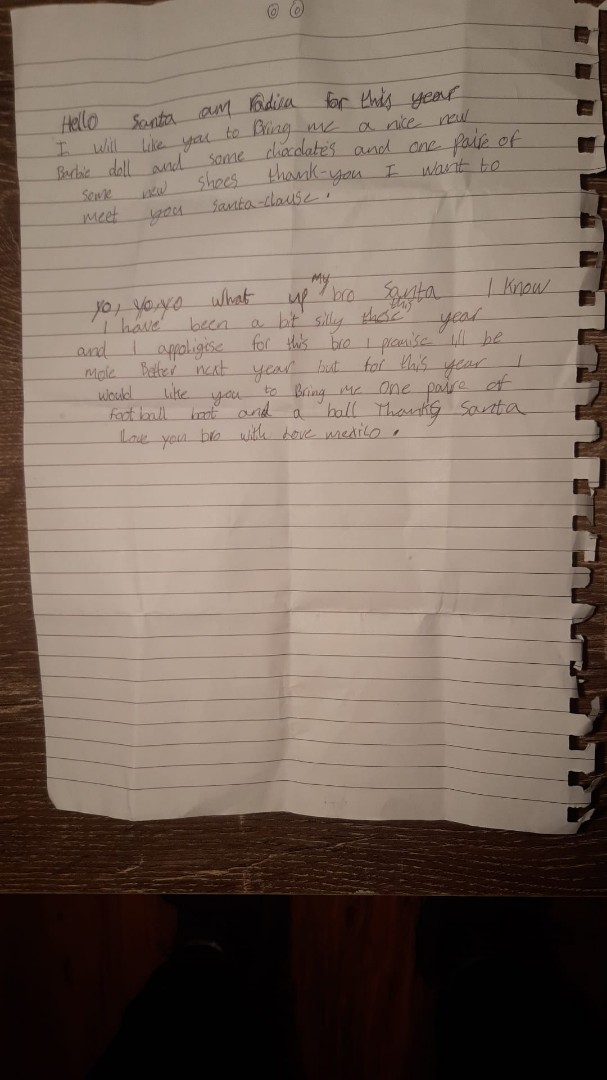 Hello Santa am Radica for this year
I will like you to Bring me a nice new
Barbie doll and some chocolates and one paire of
some new shoes thank-you I want to
meet you Santa-clause.
yo, yo, yo what up my bro Santa I know
I have been a bit silly this year
and I appoligise for this bro I promise I'll be
more Better next year but for this year I
would like you to Bring me one paire of
foot ball boot and a ball Thanks Santa
love you bro with Love mexico.